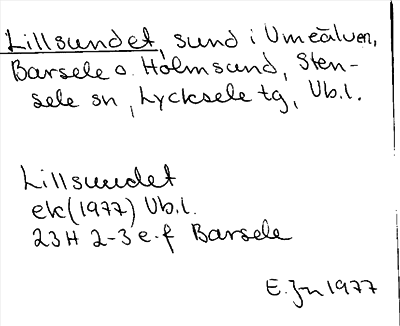 Lillsundet, sund i Umeälven,
Barsele o. Holmsund, Sten-
sele sn, Lycksele tg, Vb.l.
Lillsundet
ek (1977) Vb.l.
23H 2-3 e-f Barsele
E. Jn 1977